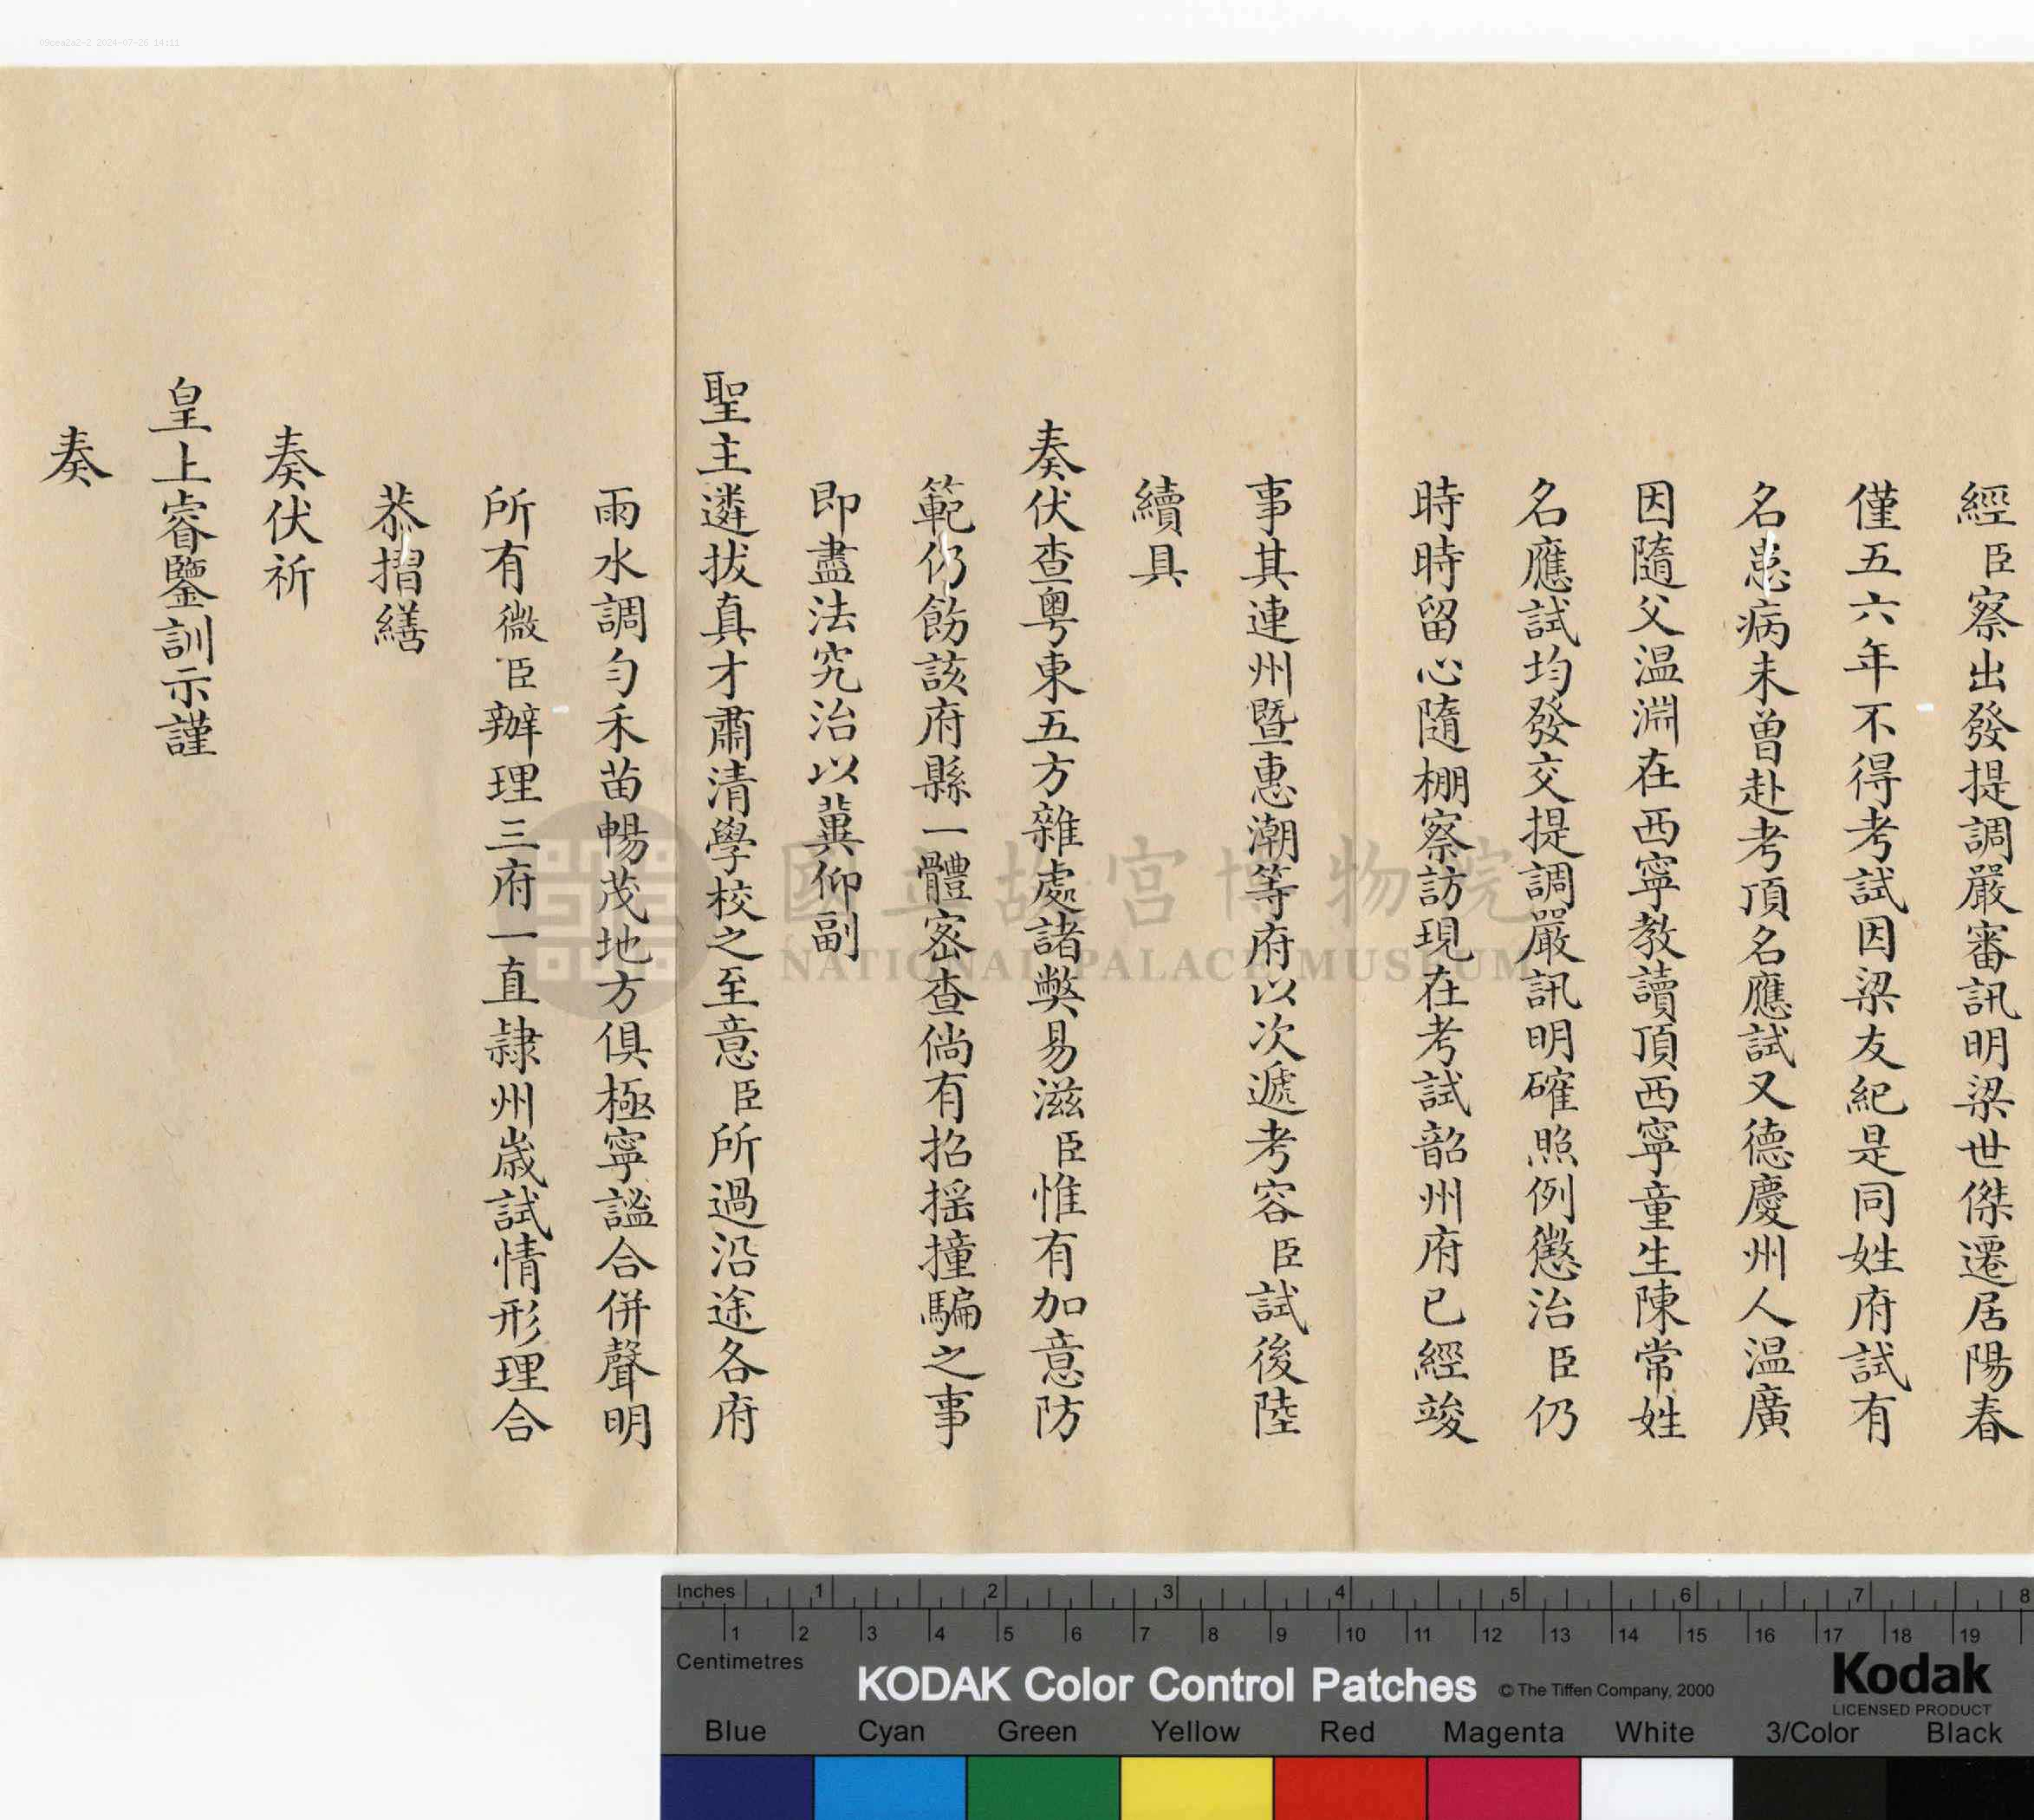 經臣察出發提調嚴審訊明梁世傑遷居陽春
僅五六年不得考試因梁友紀是同姓府試有
名患病未曾赴考頂名應試又德慶州人温廣
因隨父温淵在西寧教讀頂西寧童生陳常姓
名應試均發交提調嚴訊明確照例懲治臣仍
時時留心隨棚察訪現在考試韶州府已經竣
事其連州暨惠潮等府以次遞考容臣試後陸
續具
奏伏查粵東五方雜處諸弊易滋臣惟有加意防
範仍飭該府縣一體密查倘有招摇撞騙之事
即盡法究治以冀仰副
聖主遴拔真才肅清學校之至意臣所過沿途各府
雨水調勻禾苗暢茂地方俱極寧謐合併聲明
所有微臣辦理三府一直隸州歲試情形理合
恭摺繕
奏伏祈
皇上睿鑒訓示謹
奏
國立故宮博物院
NATIONAL PALACE MUSEUM
09cea2a2-2 2024-07-26 14:11
Inches 1 2 3 4 5 6 7 8
1 2 3 4 5 6 7 8 9 10 11 12 13 14 15 16 17 18 19
Centimetres
KODAK Color Control Patches © The Tiffen Company, 2000
Kodak
LICENSED PRODUCT
Blue Cyan Green Yellow Red Magenta White 3/Color Black